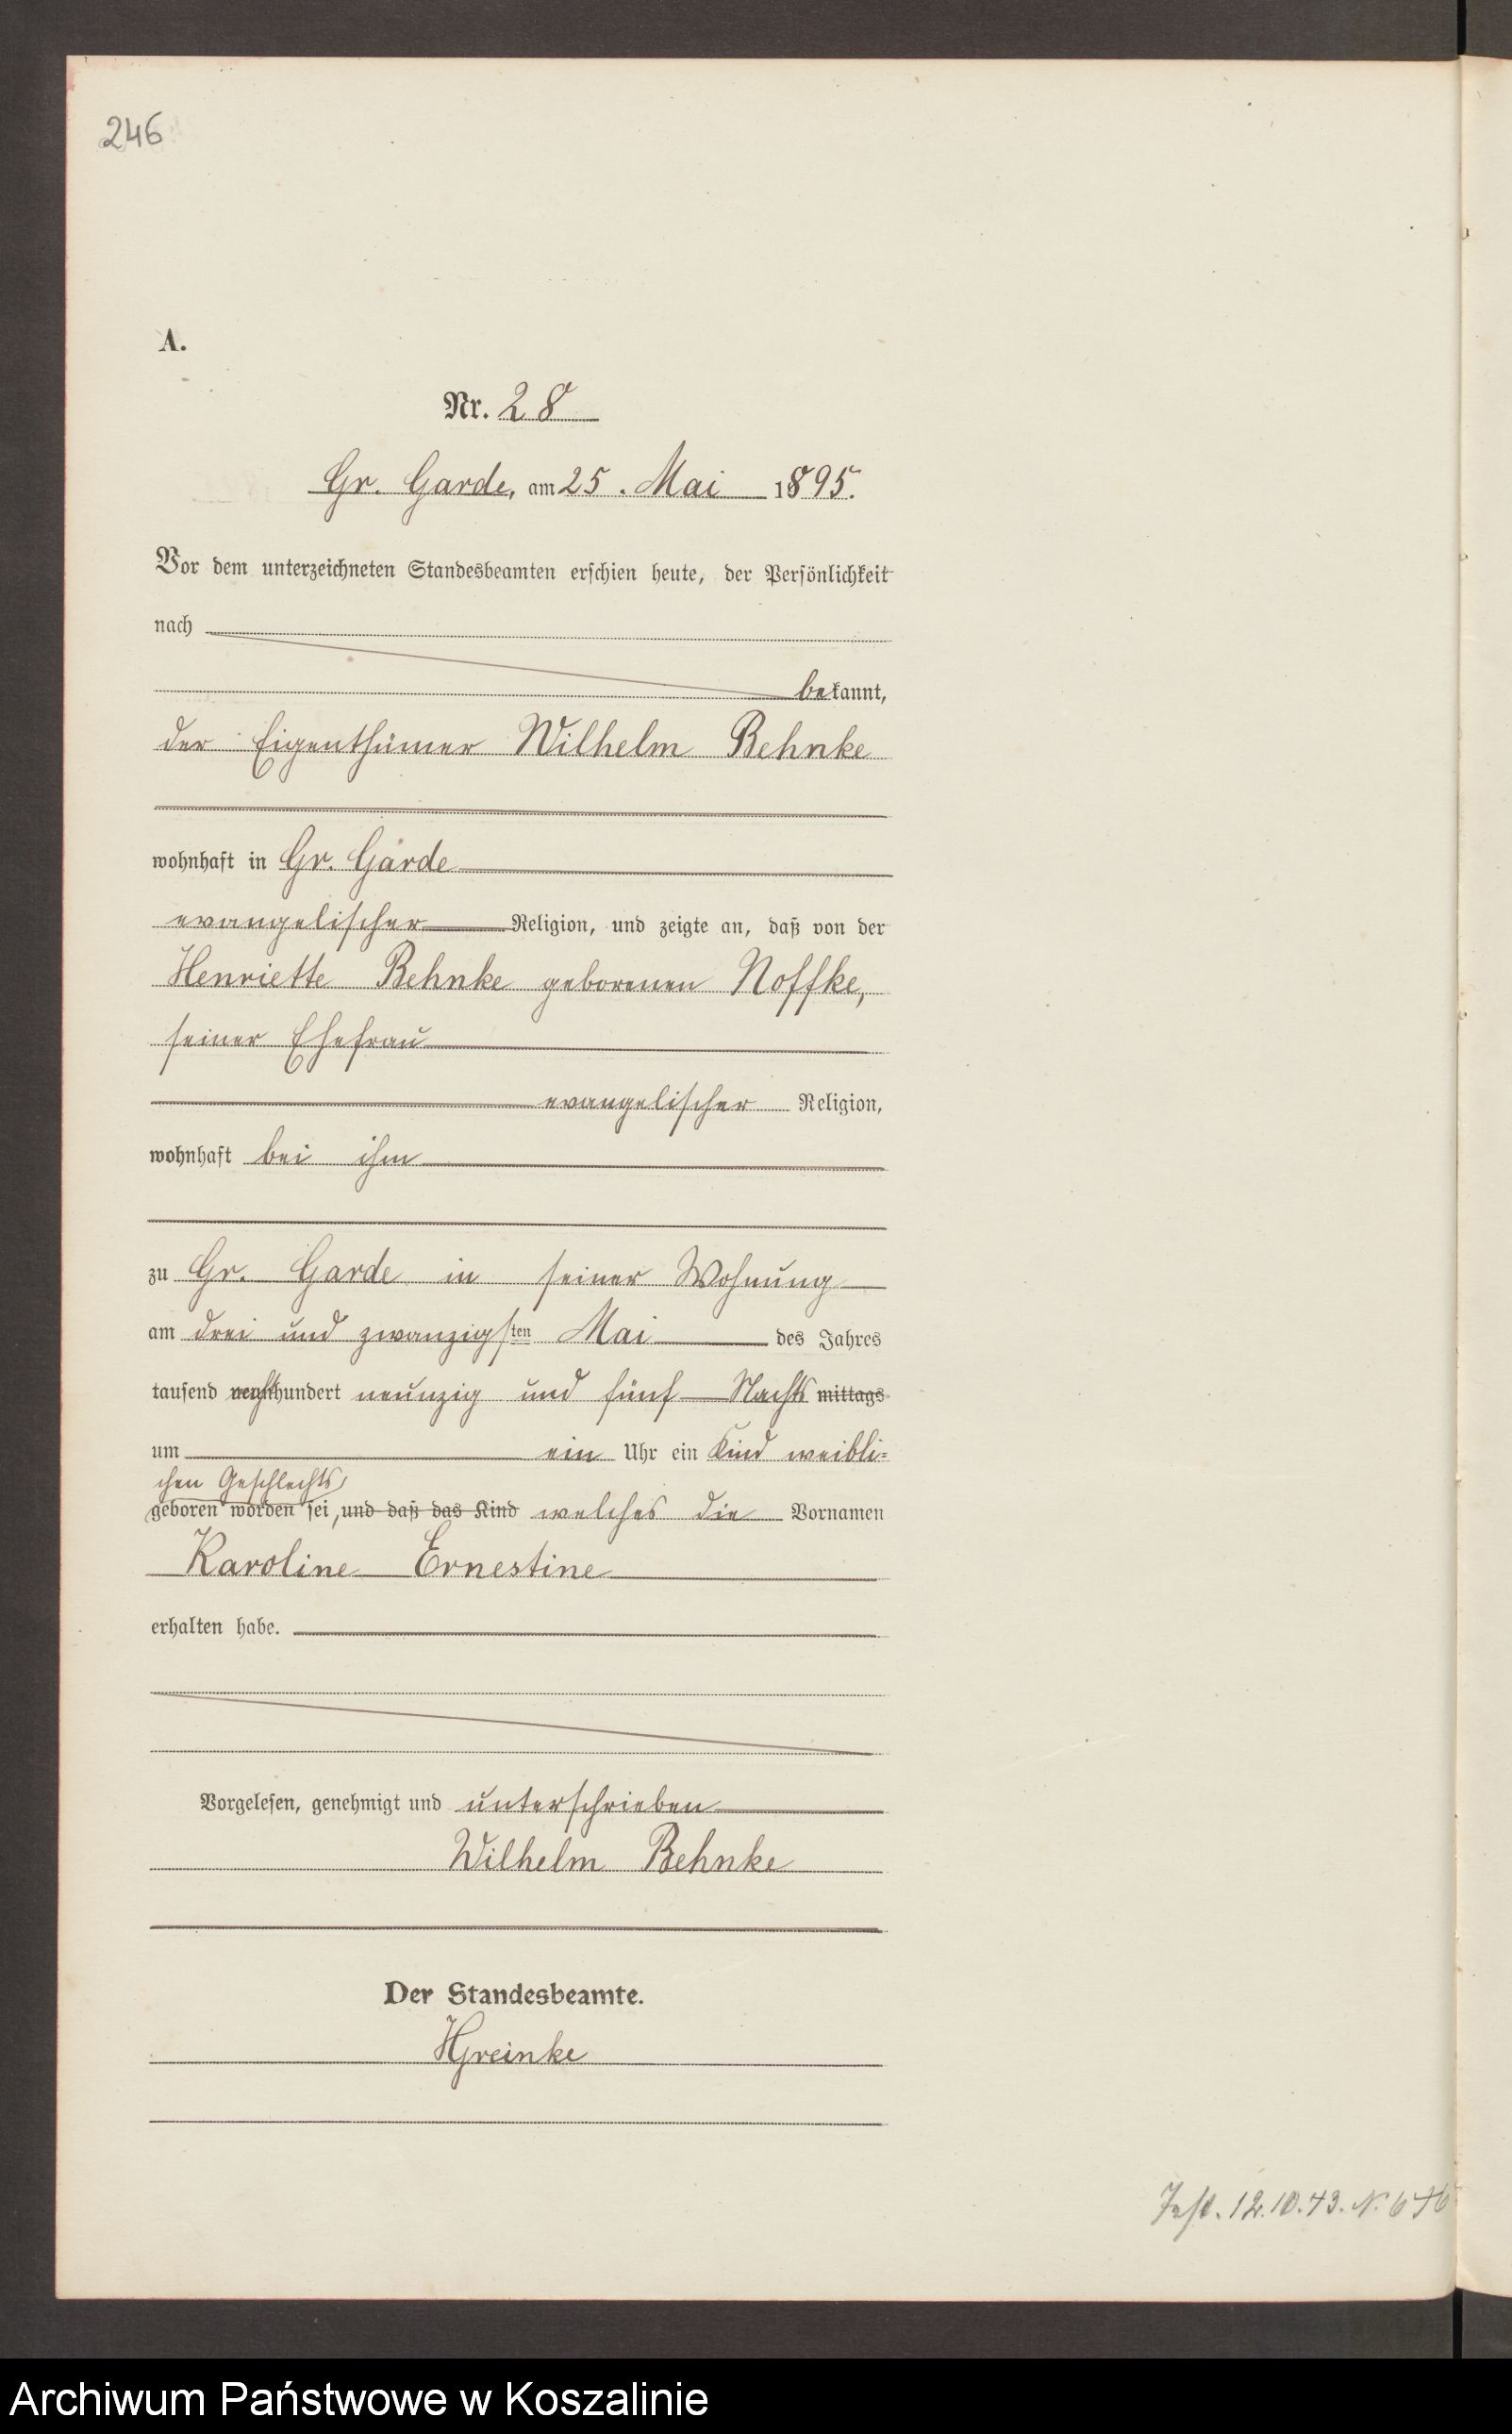 246
A.
Nr. 28
Gr. Garde, am 25. Mai 1895.
Vor dem unterzeichneten Standesbeamten erschien heute, der Persönlichkeit
nach
bekannt,
der Eigenthümer Wilhelm Behnke
wohnhaft in Gr. Garde
evangelischer Religion, und zeigte an, daß von der
Henriette Behnke geborenen Noffke,
seiner Ehefrau
evangelischer Religion,
wohnhaft bei ihm
zu Gr. Garde in seiner Wohnung
am drei und zwanzigsten Mai des Jahres
tausend achthundert neunzig und fünf Nachts mittags
um ein Uhr ein Kind weibli=
chen Geschlechts
geboren worden sei, und daß das Kind welches die Vornamen
Karoline Ernestine
erhalten habe.
Vorgelesen, genehmigt und unterschrieben
Wilhelm Behnke
Der Standesbeamte.
HGreinke
12.10.43. N.
Archiwum Państwowe w Koszalinie